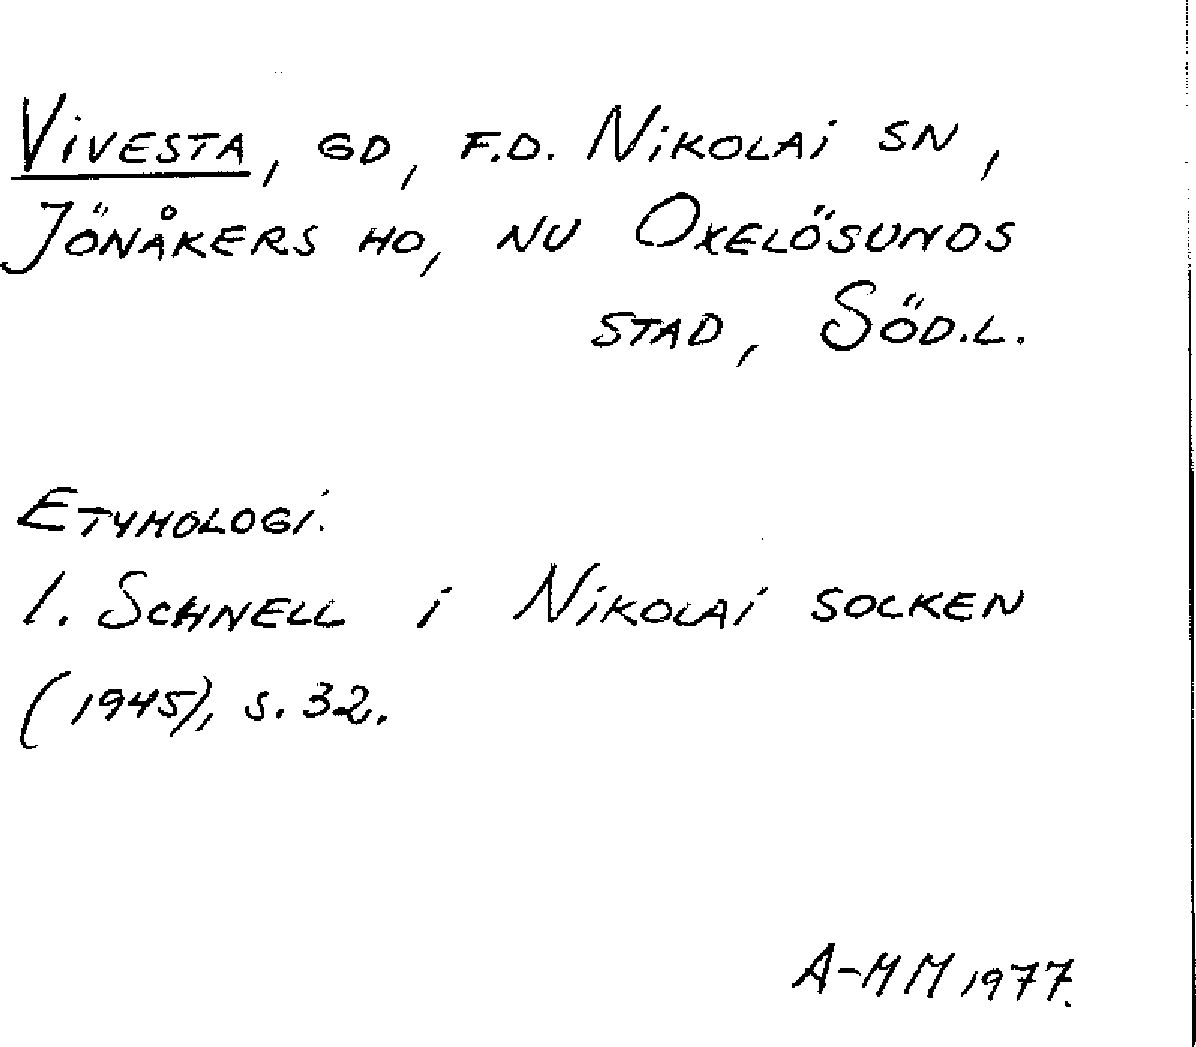 Vivesta, gd, f.d. Nikolai sn,
Jönåkers hd, nu Oxelösunds
stad, Söd.l.
Etymologi.
I. Schnell i Nikolai socken
(1945), s. 32.
A-MM 1977.